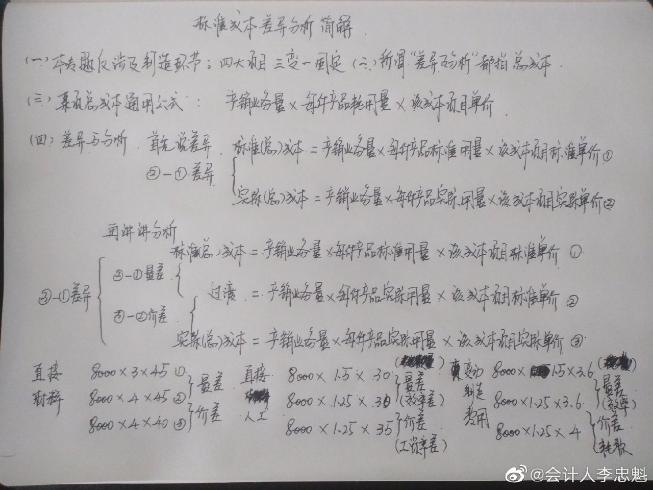 标准成本差异分析 简解
(一)本专题仅涉及制造环节；四大项目 三变一固定 (二)所谓"差异与分析"都指总成本
(三)某项总成本通用公式：产销业务量×每件产品耗用量×该成本项目单价
(四)差异与分析 首先说差异 标准(总)成本=产销业务量×每件产品标准用量×该成本项目标准单价①
②-①差异
实际(总)成本=产销业务量×每件产品实际用量×该成本项目实际单价②
再讲讲分析
标准(总)成本=产销业务量×每件产品标准用量×该成本项目标准单价①
③-①差异 ②-①量差
过渡 =产销业务量×每件产品实际用量×该成本项目标准单价②
③-②价差
实际(总)成本=产销业务量×每件产品实际用量×该成本项目实际单价③
直接 8000×3×45① 直接 8000×1.5×30 变动 8000×1.5×3.6
材料 8000×4×45② 量差 人工 8000×1.25×30 量差(效率差) 制造 8000×1.25×3.6 量差(效率)
8000×4×40③ 价差 8000×1.25×35 价差(工资率差) 费用 8000×1.25×4 价差(耗散)
@会计人李忠魁